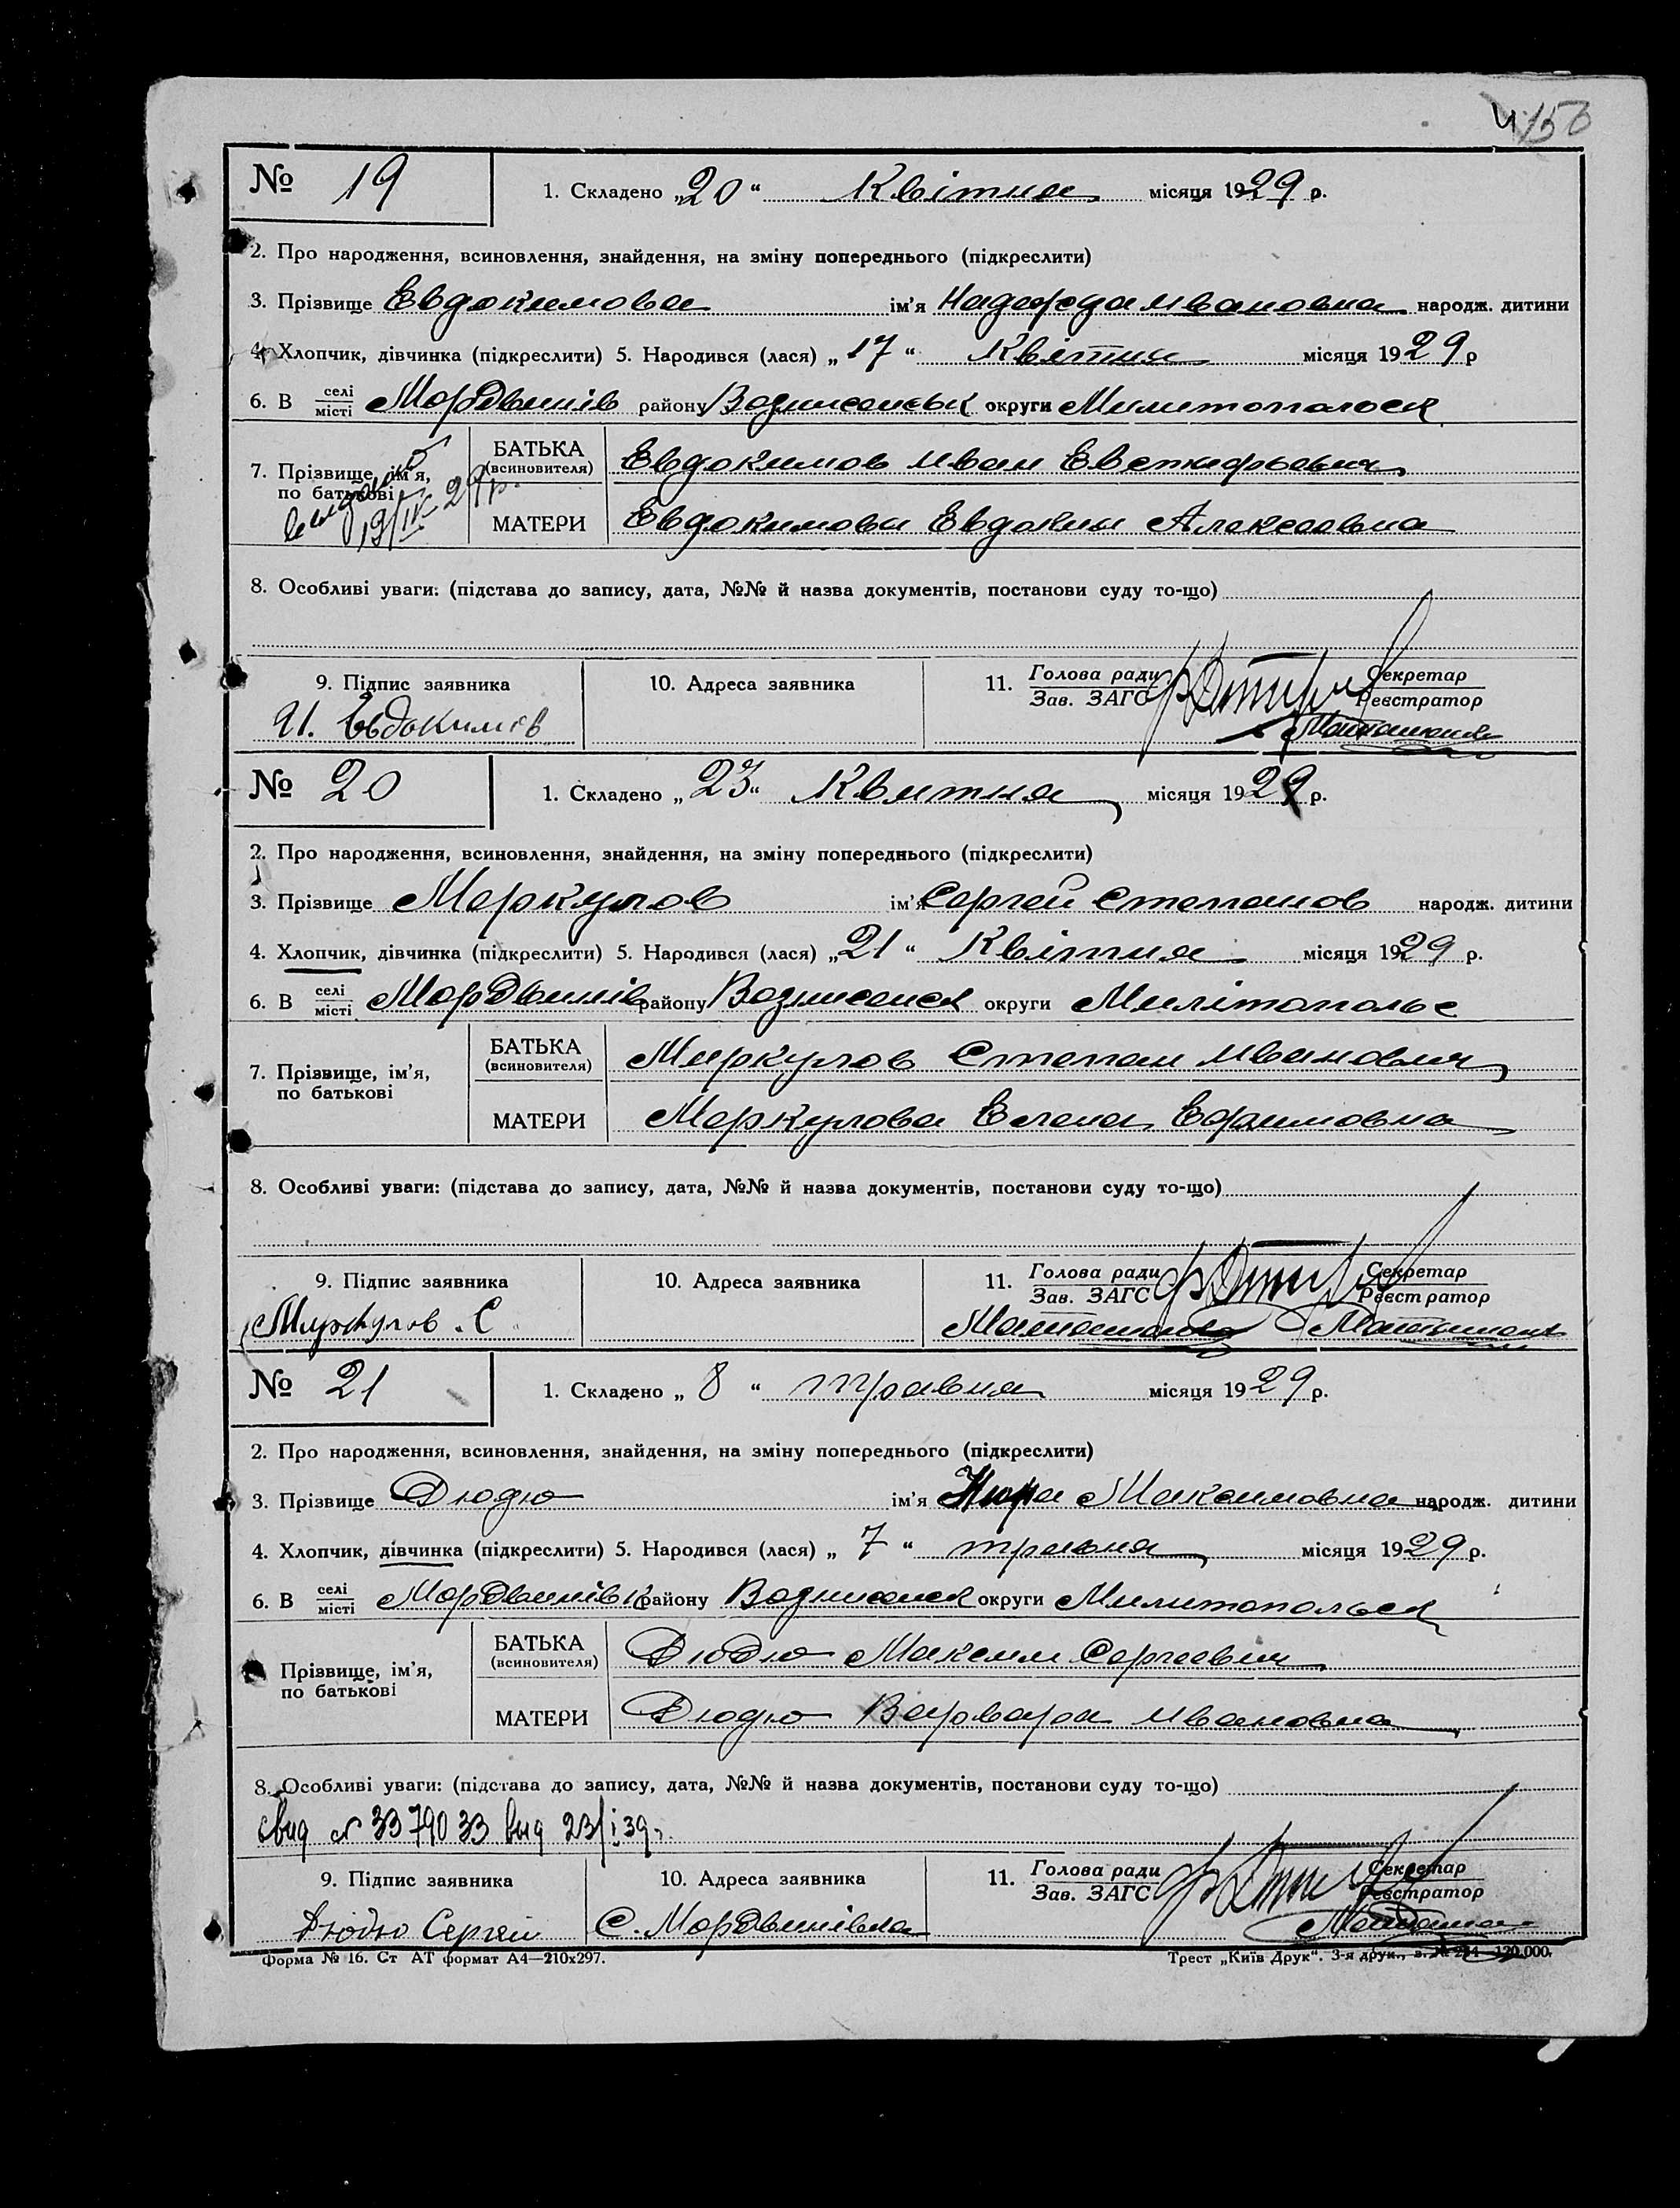 № 19 1. Складено „20“ Квітня місяця 1929 р.
2. Про народження, всиновлення, знайдення, на зміну попереднього (підкреслити)
3. Прізвище Евдокимова ім'я Надежда Ивановна народж. дитини
4. Хлопчик, дівчинка (підкреслити) 5. Народився (лася) „17“ Квітня місяця 1929 р
6. В селі місті Мордвинів району Вознисенськ округи Милитопольск
7. Прізвище, ім'я, по батькові
19/IV 29 р.
БАТЬКА (всиновителя) Евдокимов Иван
МАТЕРИ Евдокимова Евдокия Алексеевна
8. Особливі уваги: (підстава до запису, дата, №№ й назва документів, постанови суду то-що)
9. Підпис заявника 10. Адреса заявника 11. Голова ради Зав. ЗАГС Секретар Реєстратор
И. Евдокимов
№ 20 1. Складено „23“ Квитня місяця 1929 р.
2. Про народження, всиновлення, знайдення, на зміну попереднього (підкреслити)
3. Прізвище Меркулов ім'я Сергей Степанов народж. дитини
4. Хлопчик, дівчинка (підкреслити) 5. Народився (лася) „21“ Квітня місяця 1929 р.
6. В селі місті Мордвинів району Вознисенск округи Милітополье
7. Прізвище, ім'я, по батькові
БАТЬКА (всиновителя) Меркулов Степан Иванович
МАТЕРИ Меркулова Елена Ефимовна
8. Особливі уваги: (підстава до запису, дата, №№ й назва документів, постанови суду то-що)
9. Підпис заявника 10. Адреса заявника 11. Голова ради Зав. ЗАГС Секретар Реєстратор
Меркулов С
№ 21 1. Складено „8“ травня місяця 1929 р.
2. Про народження, всиновлення, знайдення, на зміну попереднього (підкреслити)
3. Прізвище Дюдю ім'я Нюра Максимовна народж. дитини
4. Хлопчик, дівчинка (підкреслити) 5. Народився (лася) „7“ травня місяця 1929 р.
6. В селі місті Мордвинівк району Вознисенск округи Милитопольск
Прізвище, ім'я, по батькові
БАТЬКА (всиновителя) Дюдю Максим Сергеевич
МАТЕРИ Дюдю Варвара Ивановна
8. Особливі уваги: (підстава до запису, дата, №№ й назва документів, постанови суду то-що)
свид № 3379033 выд 23/I 39 г.
9. Підпис заявника 10. Адреса заявника 11. Голова ради Зав. ЗАГС Секретар Реєстратор
Дюдю Сергей С. Мордвинівка
Форма № 16. Ст АТ формат А4—210х297. Трест „Київ Друк“. 3-я друк., з. № 120.000.